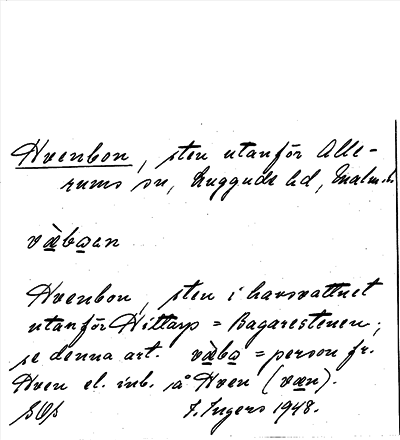 Hvenbon, sten utanför Alle-
rums sn, Luggude hd, Malm. l.
væ̀bo̲en
Hvenbon, sten i havsvattnet
utanför Hittarp = Bagarestenen;
se denna art. væ̀bo̲ = person fr.
Hven el. inb. på Hven (væn).
I. Ingers 1948.